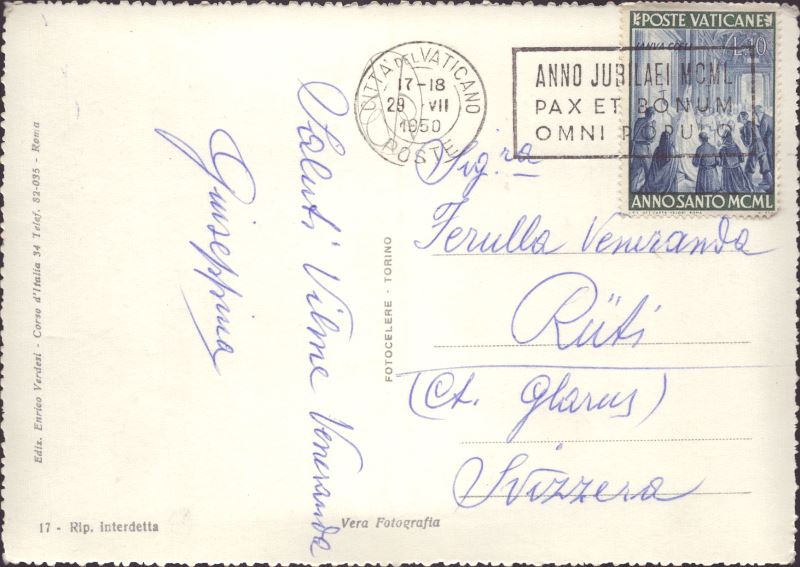 Ediz. Enrico Verdesi - Corso d'Italia 34 Telef. 82-035 - Roma
17 - Rip. interdetta
Saluti Vilma Veneranda
Giuseppina
Vera Fotografia
FOTOCELERE - TORINO
CITTÀ DEL VATICANO
17-18
29 VII
1950
POSTE
ANNO JUBILAEI MCML
PAX ET BONUM
OMNI POPULO
POSTE VATICANE
IANVA COELI
L.10
ANNO SANTO MCML
Sig.ra
Ferulla Veneranda
Rüti
(Ct. Glarus)
Svizzera